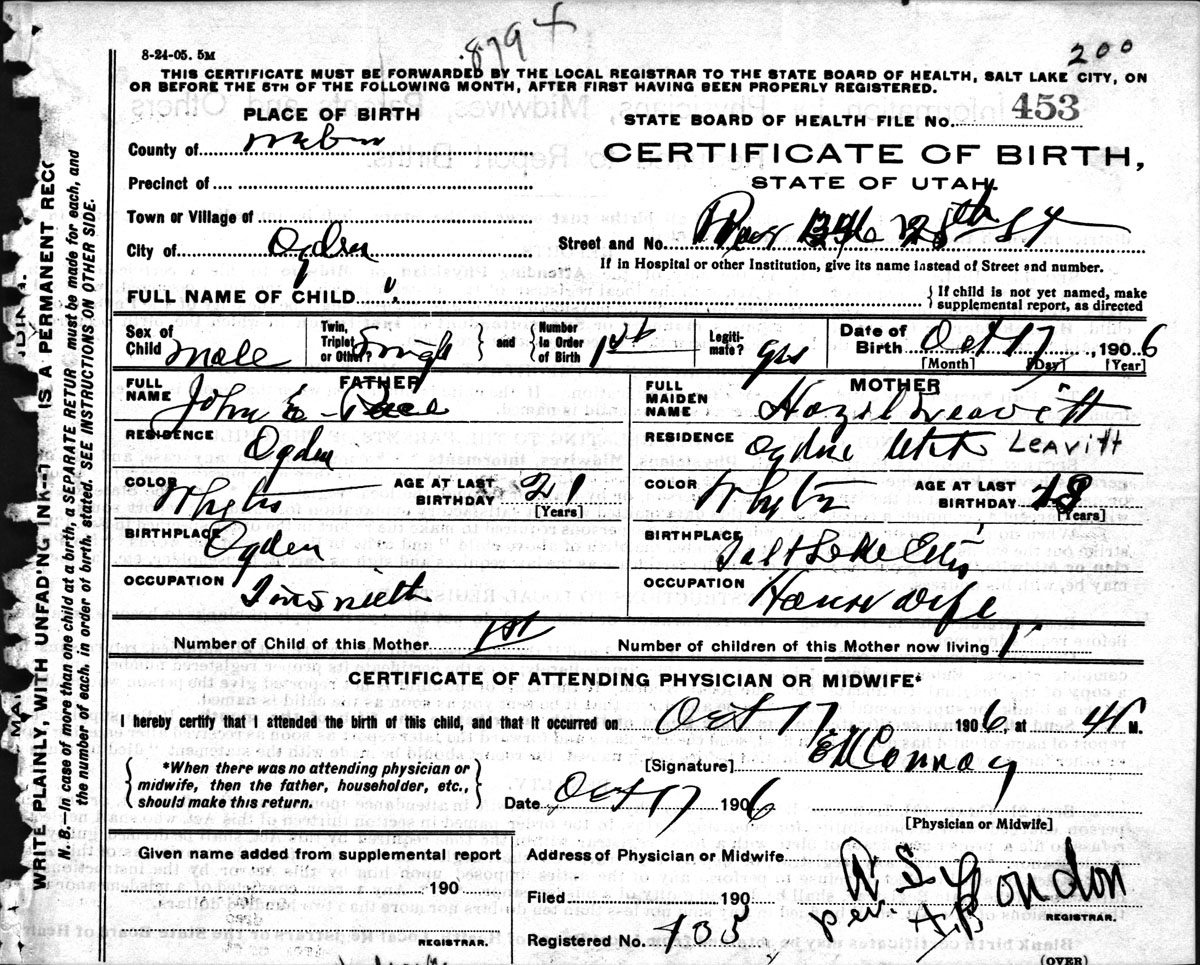 8-24-05. 5M
879 +
200
THIS CERTIFICATE MUST BE FORWARDED BY THE LOCAL REGISTRAR TO THE STATE BOARD OF HEALTH, SALT LAKE CITY, ON
OR BEFORE THE 5TH OF THE FOLLOWING MONTH, AFTER FIRST HAVING BEEN PROPERLY REGISTERED.
PLACE OF BIRTH
STATE BOARD OF HEALTH FILE No. 453
County of
CERTIFICATE OF BIRTH,
Precinct of
STATE OF UTAH.
Town or Village of
City of Ogden
Street and No. 25th St
If in Hospital or other Institution, give its name instead of Street and number.
FULL NAME OF CHILD
{If child is not yet named, make supplemental report, as directed
Sex of Child Male
Twin, Triplet or Other?
and
Number in Order of Birth 1st
Legitimate? yes
Date of Birth Oct 17, 1906
[Month] [Day] [Year]
FATHER
FULL NAME John E.
RESIDENCE Ogden
COLOR
AGE AT LAST BIRTHDAY 21
[Years]
BIRTHPLACE Ogden
OCCUPATION
MOTHER
FULL MAIDEN NAME Hazel Leavitt
RESIDENCE Ogden Utah LEAVITT
COLOR
AGE AT LAST BIRTHDAY
[Years]
BIRTHPLACE Salt Lake City
OCCUPATION House wife
Number of Child of this Mother 1st
Number of children of this Mother now living 1
CERTIFICATE OF ATTENDING PHYSICIAN OR MIDWIFE*
I hereby certify that I attended the birth of this child, and that it occurred on Oct 17 1906, at M.
{*When there was no attending physician or midwife, then the father, householder, etc., should make this return.}
[Signature] Conroy
Date Oct 17 1906
[Physician or Midwife]
Given name added from supplemental report
190
REGISTRAR.
Address of Physician or Midwife
Filed 190
per
REGISTRAR.
Registered No. 405
(OVER)
WRITE PLAINLY, WITH UNFADING INK-T IS A PERMANENT REC
N. B.—In case of more than one child at a birth, a SEPARATE RETUR must be made for each, and
the number of each, in order of birth, stated. SEE INSTRUCTIONS ON OTHER SIDE.